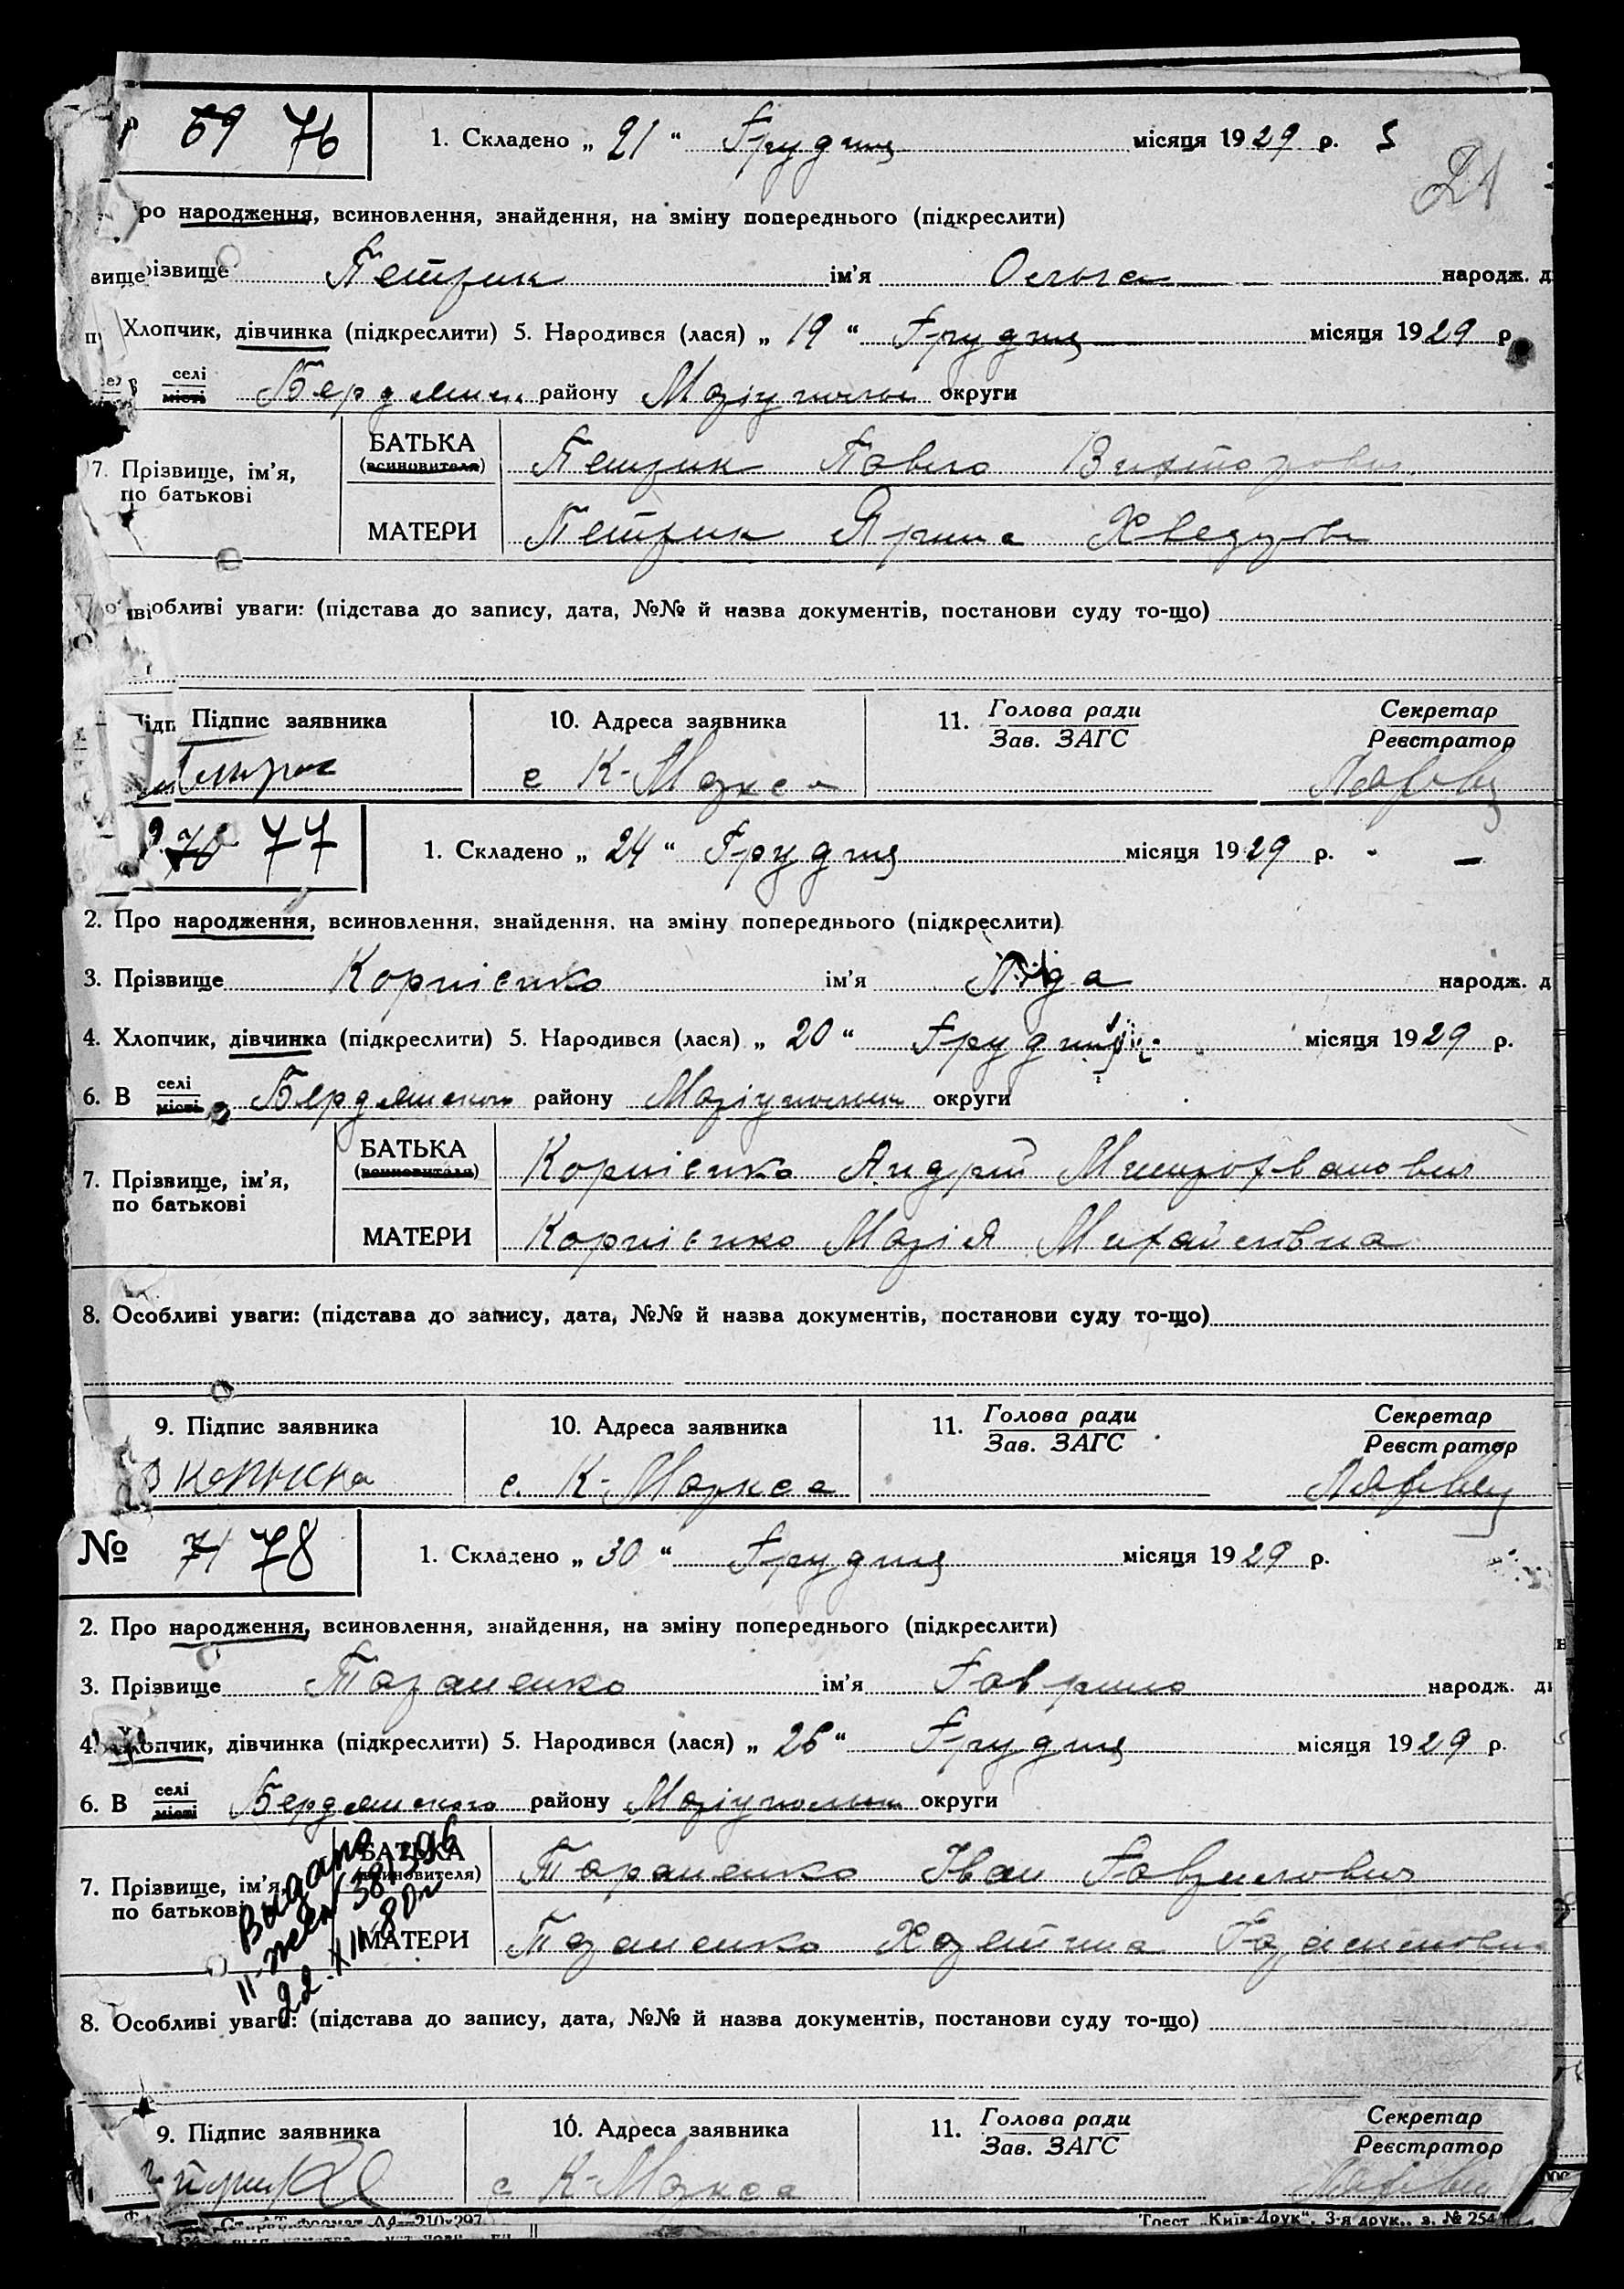 69 76
1. Складено „ 21 “ Грудня місяця 1929 р. 5
21
ро народження, всиновлення, знайдення, на зміну попереднього (підкреслити)
вище різвище Петрик ім'я Ольга народж. д
Хлопчик, дівчинка (підкреслити) 5. Народився (лася) „ 19 “ Грудня місяця 1929 р.
в селі місті Бердянськ. району Маріупольськ округи
БАТЬКА (всиновителя) Петрик Павло Викторович
7. Прізвище, ім'я, по батькові
МАТЕРИ Петрик Ярина Хведоровн
обливі уваги: (підстава до запису, дата, №№ й назва документів, постанови суду то-що)
Підпис заявника 10. Адреса заявника 11. Голова ради Зав. ЗАГС Секретар Реєстратор
с К-Маркса
70 77
1. Складено „ 24 “ Грудня місяця 1929 р.
2. Про народження, всиновлення, знайдення, на зміну попереднього (підкреслити)
3. Прізвище Корнієнко ім'я Ліда народж. д
4. Хлопчик, дівчинка (підкреслити) 5. Народився (лася) „ 20 “ Грудня місяця 1929 р.
6. В селі місті Бердянського району Маріупольськ округи
БАТЬКА (всиновителя) Корнієнко Андрій Митрофанович
7. Прізвище, ім'я, по батькові
МАТЕРИ Корнієнко Марія Михайлівна
8. Особливі уваги: (підстава до запису, дата, №№ й назва документів, постанови суду то-що)
9. Підпис заявника 10. Адреса заявника 11. Голова ради Зав. ЗАГС Секретар Реєстратор
с. К-Маркса
№ 71 78
1. Складено „ 30 “ Грудня місяця 1929 р.
2. Про народження, всиновлення, знайдення, на зміну попереднього (підкреслити)
3. Прізвище Тараненко ім'я Гаврило народж. ди
4. Хлопчик, дівчинка (підкреслити) 5. Народився (лася) „ 26 “ Грудня місяця 1929 р.
6. В селі місті Бердянського району Маріупольськ округи
БАТЬКА (всиновителя) Тараненко Іван Гаврилович
7. Прізвище, ім'я, по батькові
МАТЕРИ Тараненко Харетина
22.XII-80г
8. Особливі уваги: (підстава до запису, дата, №№ й назва документів, постанови суду то-що)
9. Підпис заявника 10. Адреса заявника 11. Голова ради Зав. ЗАГС Секретар Реєстратор
с К-Маркса
Трест „Київ-Друк“. 3-я друк., з. № 254